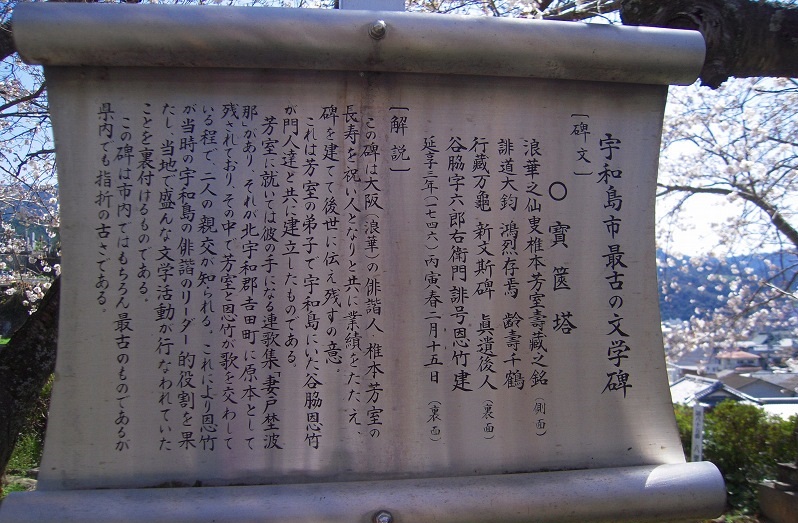 宇和島市最古の文学碑
〔碑文〕
〇 寳篋塔
浪華之仙叟椎本芳室壽藏之銘（側面）
誹道大鈞 鴻烈存焉 齡壽千鶴
行藏万龜 新文斯碑 眞遺後人（裏面）
谷脇字六郎右衛門誹号恩竹建
延享三年（一七四六）丙寅春二月十五日（裏面）
〔解説〕
この碑は大阪（浪華）の俳諧人 椎本芳室の
長寿を祝い人となりと共に業績をたたえ、
碑を建てて後世に伝え残すの意。
これは芳室の弟子で宇和島にいた谷脇恩竹
が門人達と共に建立したものである。
芳室に就いては彼の手になる連歌集「妻戸埜波
那」があり それが北宇和郡吉田町に原本として
残されており、その中で芳室と恩竹が歌を交わして
いる程で、二人の親交が知られる。これにより恩竹
が当時の宇和島の俳諧のリーダー的役割を果
たし、当地で盛んな文学活動が行なわれていた
ことを裏付けるものである。
この碑は市内ではもちろん最古のものであるが
県内でも指折の古さである。